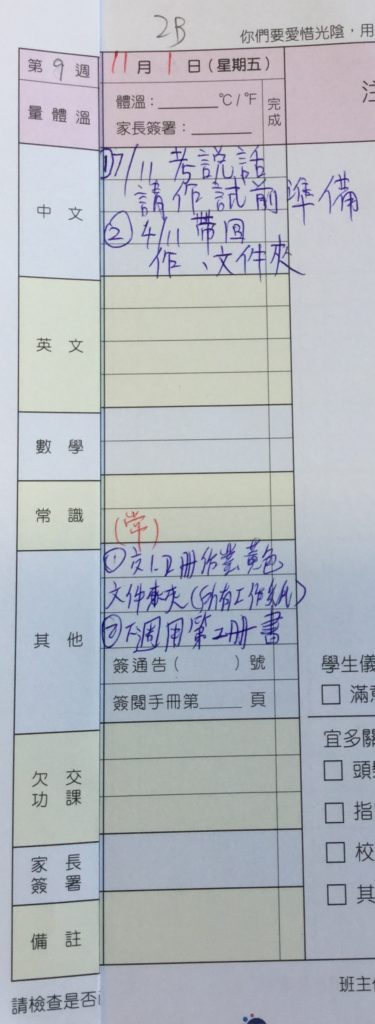 2B
你們要愛惜光陰，用
第 9 週 11 月 1 日（星期五）
量 體 溫
體溫：______ °C / °F
家長簽署：______
完成
注
中 文
① 7/11 考說話
請作試前準備
② 4/11 帶回
作、文件夾
英 文
數 學
常 識
(常)
其 他
文件
夾(所有工作紙)
② 下週用第二冊書
簽通告（ ）號
簽閱手冊第___ 頁
學生儀
□ 滿意
宜多關
□ 頭髮
□ 指
□ 校
□ 其
欠 交
功 課
家 長
簽 署
備 註
班主任
請檢查是否